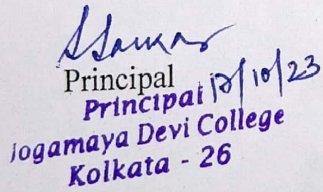 Principal
Principal 17/10/23
Jogamaya Devi College
Kolkata - 26